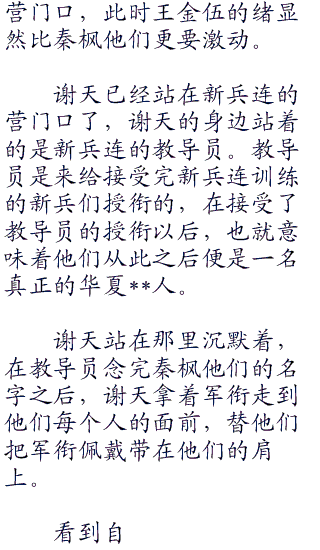 营门口，此时王金伍的绪显
然比秦枫他们更要激动。
谢天已经站在新兵连的
营门口了，谢天的身边站着
的是新兵连的教导员。教导
员是来给接受完新兵连训练
的新兵们授衔的，在接受了
教导员的授衔以后，也就意
味着他们从此之后便是一名
真正的华夏**人。
谢天站在那里沉默着，
在教导员念完秦枫他们的名
字之后，谢天拿着军衔走到
他们每个人的面前，替他们
把军衔佩戴带在他们的肩
上。
看到自